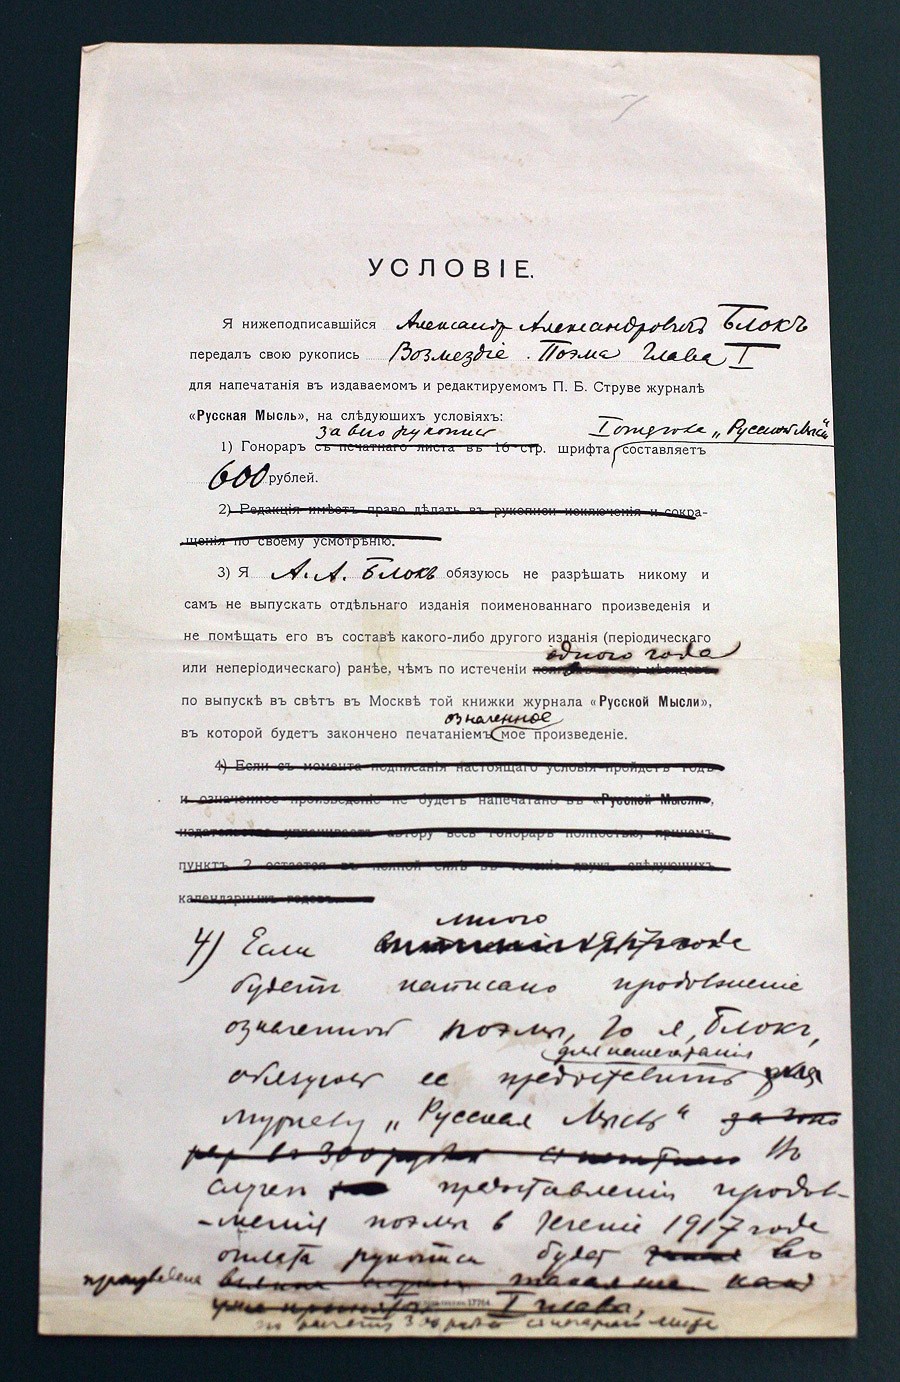 УСЛОВІЕ.
Я нижеподписавшійся Александр Александровичъ Блокъ
передалъ свою рукопись Возмездіе. Поэма Глава I
для напечатанія въ издаваемомъ и редактируемомъ П. Б. Струве журналѣ
«Русская Мысль», на слѣдующихъ условіяхъ:
за всю рукопись
1) Гонораръ съ печатнаго листа въ 16 стр. шрифта составляетъ
600 рублей.
2) Редакція имѣетъ право дѣлать въ рукописи исключенія и сокра-
щенія по своему усмотрѣнію.
3) Я А. А. Блокъ обязуюсь не разрѣшать никому и
самъ не выпускать отдѣльнаго изданія поименованнаго произведенія и
не помѣщать его въ составѣ какого-либо другого изданія (періодическаго
одного года
или неперіодическаго) ранѣе, чѣмъ по истеченіи
по выпускѣ въ свѣтъ въ Москвѣ той книжки журнала «Русской Мысли»,
означенное
въ которой будетъ закончено печатаніемъ мое произведеніе.
4) Если съ момента подписанія настоящаго условія пройдетъ годъ
и означенное произведеніе не будетъ напечатано въ «Русской Мысли»,
издательство уплачиваетъ автору весь гонораръ полностью, причемъ
пунктъ 3 остается въ полной силѣ въ теченіе двухъ слѣдующихъ
календарныхъ годовъ.
мною
4) Если 1917 годе
будетъ написано продолженіе
означенной поэмы, то я, Блокъ,
для напечатанія
обязуюсь ее предоставить
журналу „Русская Мысль“ за гоно
рар в 300 рублей Въ
случаѣ предоставленія продол-
-женія поэмы в теченіе 1917 года
оплата рукописи будет
произведена
I глава,
по расчету 300 рублей